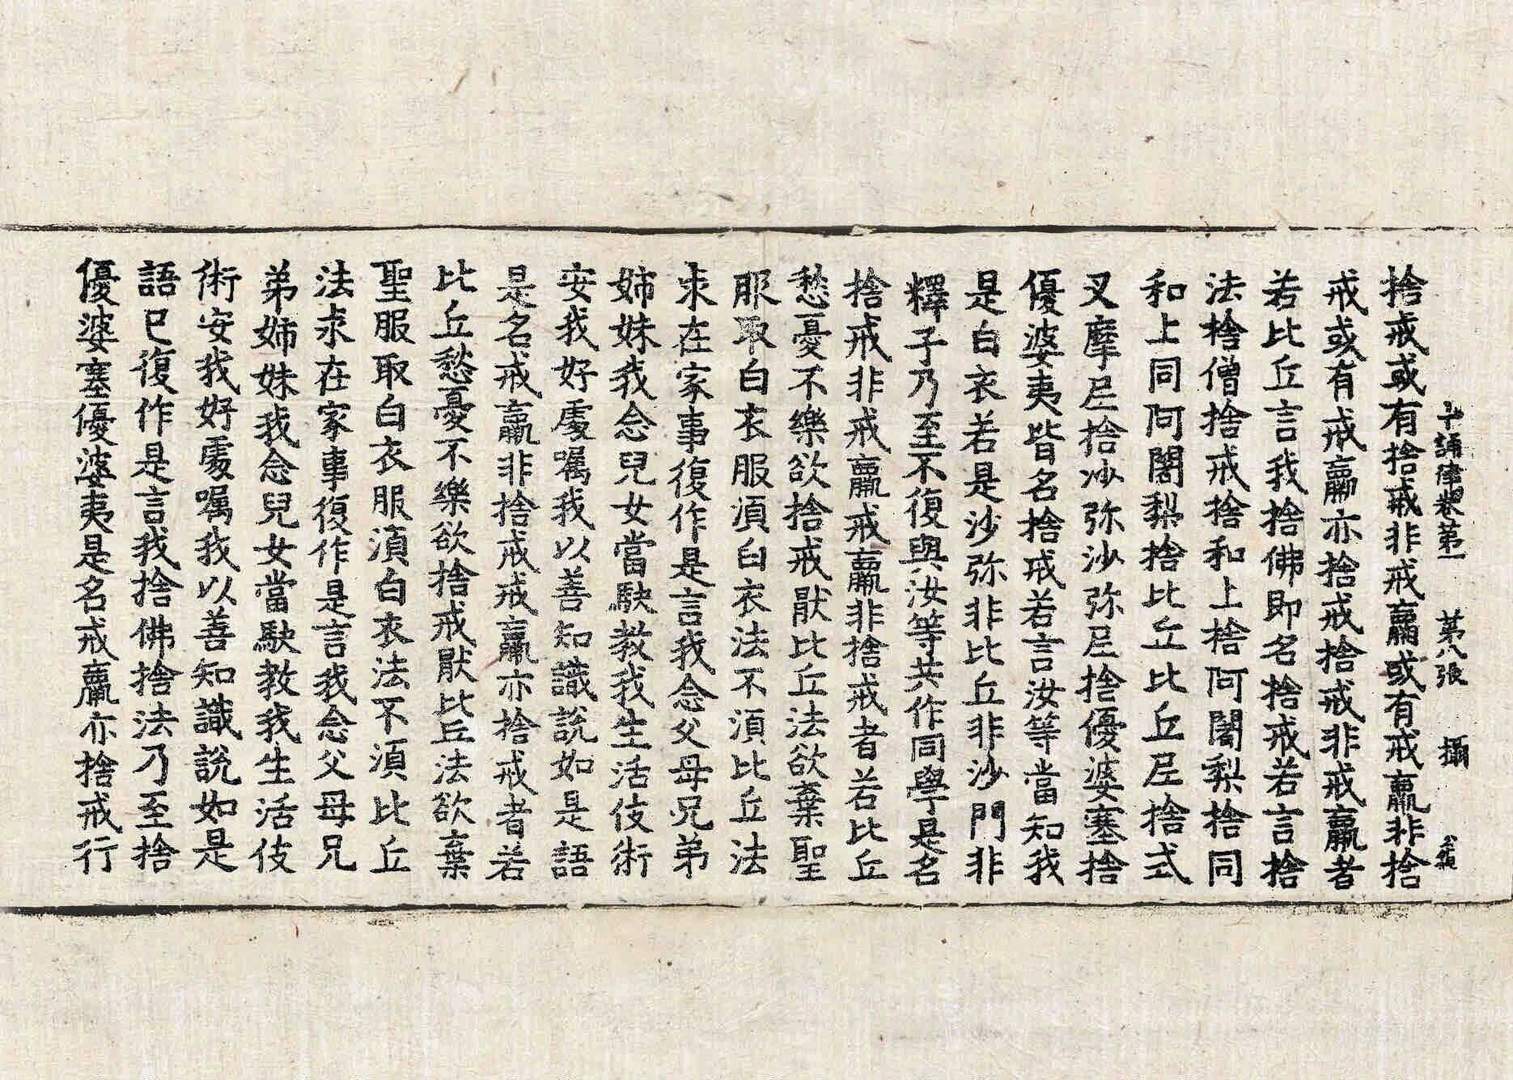 十誦律卷第一 第八張 攝
捨戒或有捨戒非戒羸或有戒羸非捨
戒或有戒羸亦捨戒捨戒非戒羸者
若比丘言我捨佛即名捨戒若言捨
法捨僧捨戒捨和上捨阿闍梨捨同
和上同阿闍梨捨比丘比丘尼捨式
叉摩尼捨沙弥沙弥尼捨優婆塞捨
優婆夷皆名捨戒若言汝等當知我
是白衣若是沙弥非比丘非沙門非
釋子乃至不復與汝等共作同學是名
捨戒非戒羸戒羸非捨戒者若比丘
愁憂不樂欲捨戒猒比丘法欲棄聖
服取白衣服湏白衣法不湏比丘法
求在家事復作是言我念父母兄弟
姉妹我念兒女當駚教我生活伎術
安我好處嘱我以善知識說如是語
是名戒羸非捨戒戒羸亦捨戒者若
比丘愁憂不樂欲捨戒猒比丘法欲棄
聖服取白衣服湏白衣法不湏比丘
法求在家事復作是言我念父母兄
弟姉妹我念兒女當駚教我生活伎
術安我好處嘱我以善知識說如是
語已復作是言我捨佛捨法乃至捨
優婆塞優婆夷是名戒羸亦捨戒行